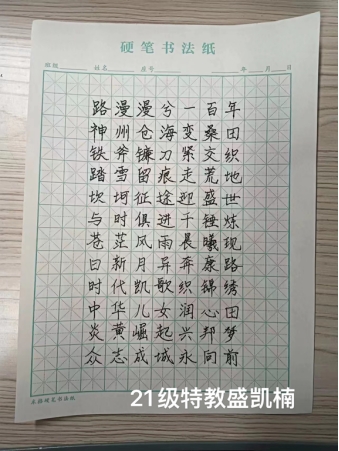 硬笔书法纸
班级 姓名 座号 年 月 日
路漫漫兮一百年
神州仓海变桑田
铁斧镰刀紧交织
踏雪留痕走荒地
坎坷征途迎盛世
与时俱进千锤炼
苍茫风雨晨曦现
日新月异奔康路
时代凯歌织锦绣
中华儿女润心田
炎黄崛起兴邦梦
众志成城永向前
21级特教盛凯楠